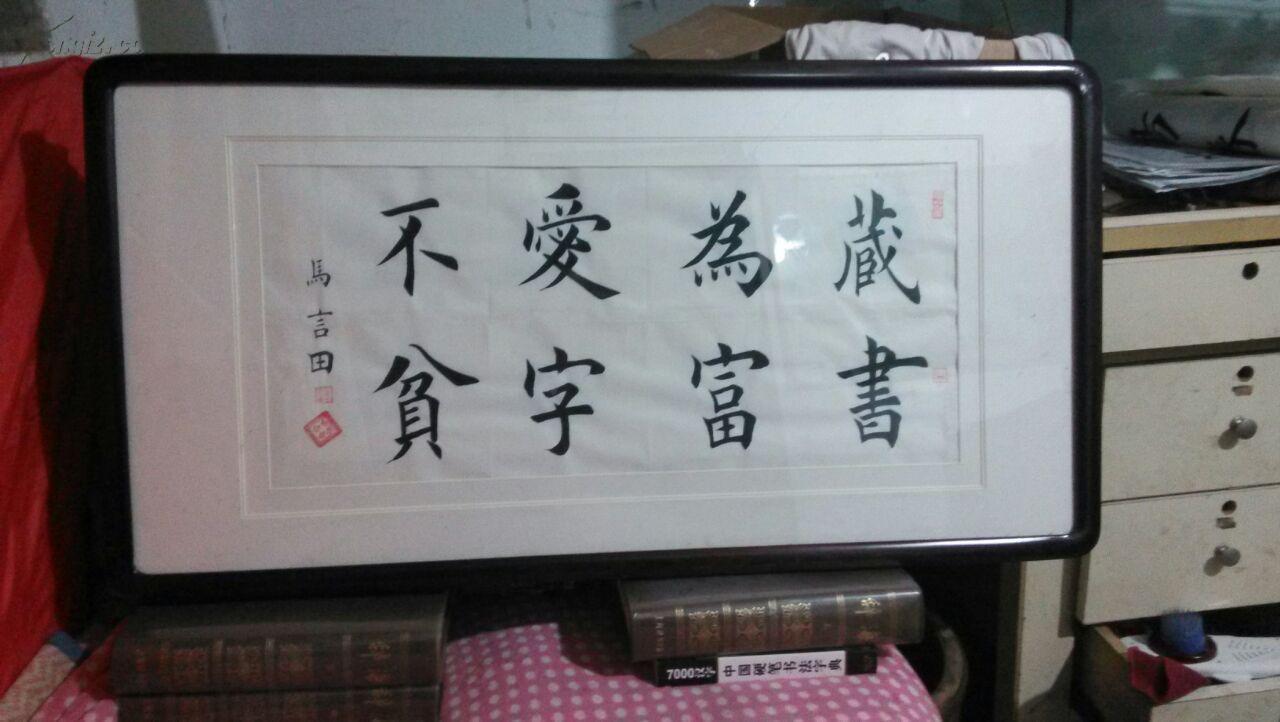 藏書
為富
愛字
不貧
馬言田
7000汉字
中国硬笔书法字典